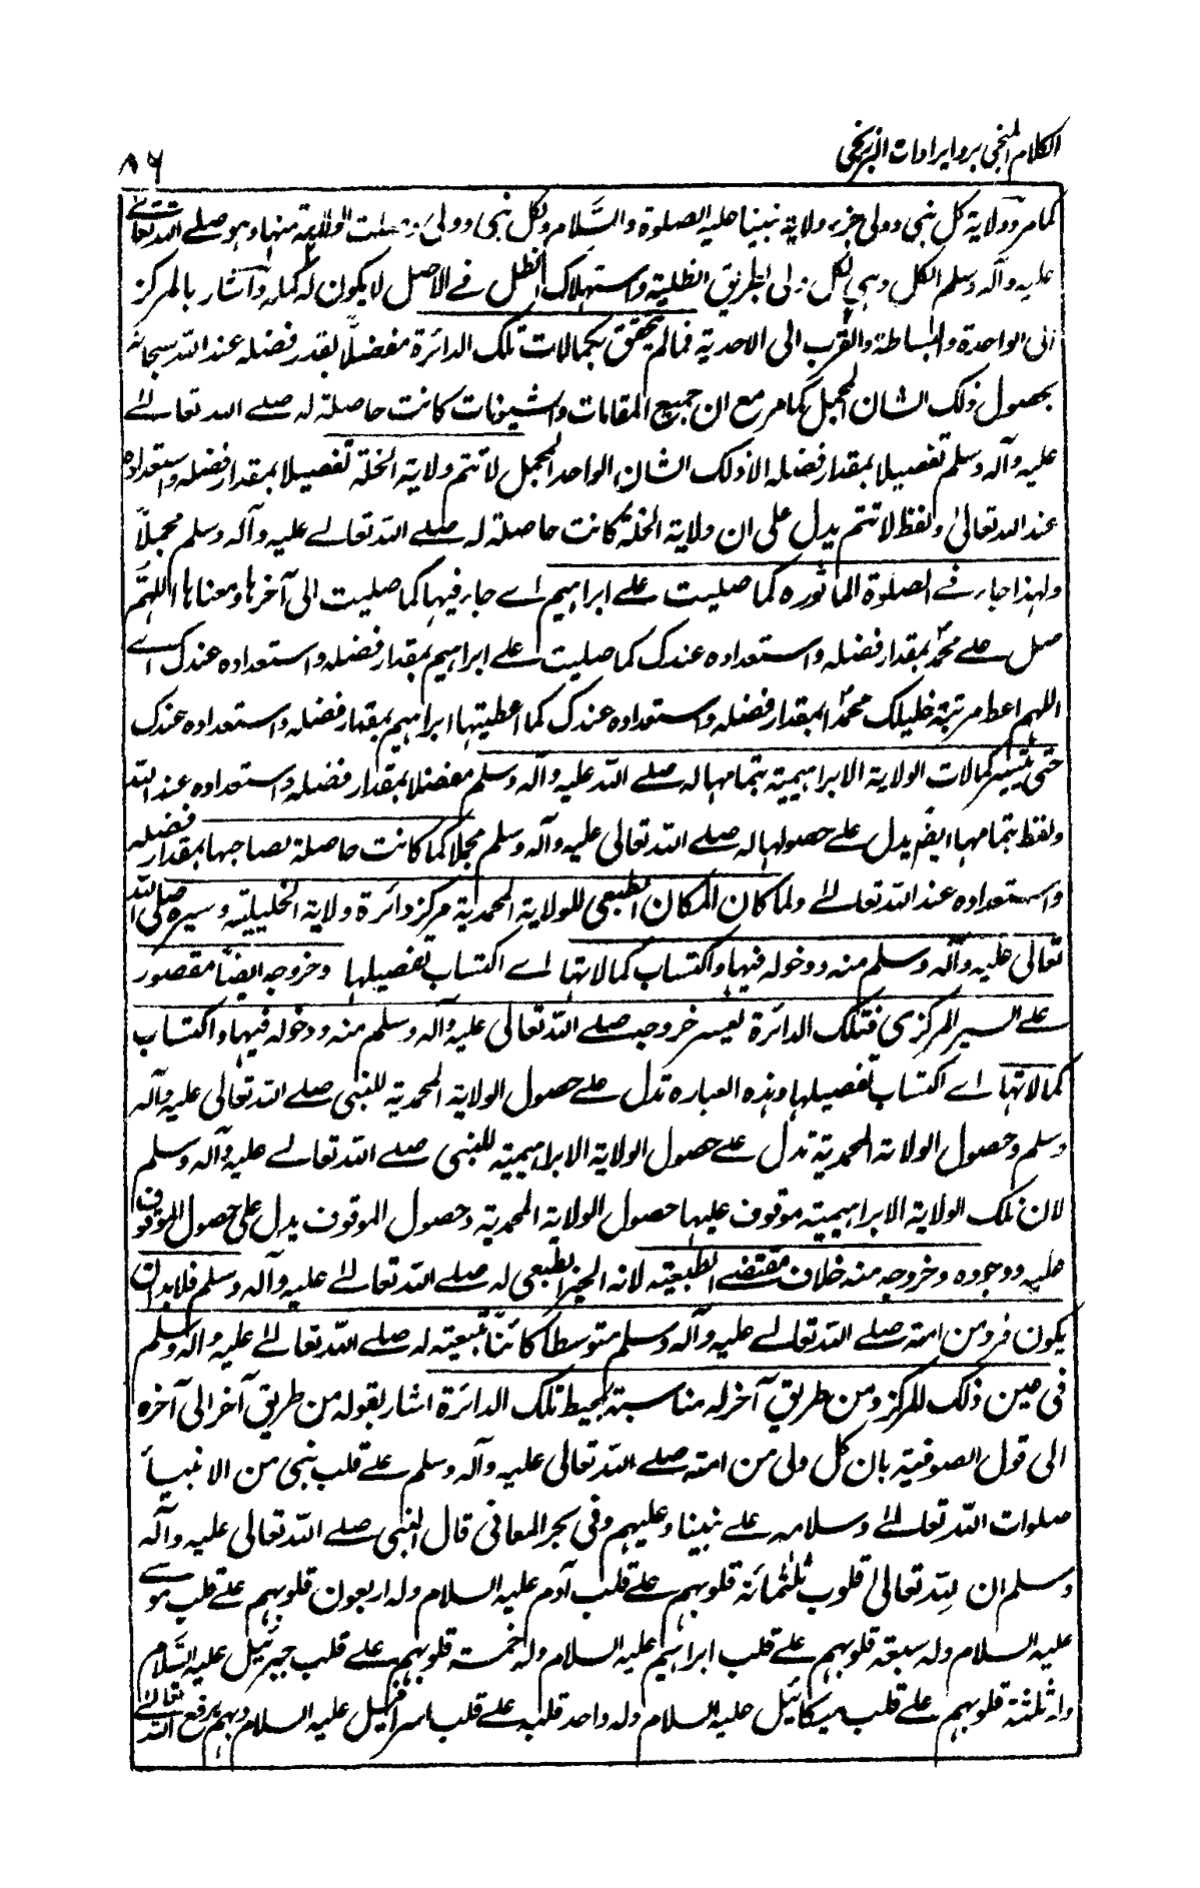 الكلام المنجى برد ايرادات البرزنجى
٨٦
كما مر وولاية كل نبى وولى جزء ولاية نبينا عليه الصلوة والسلام ولكل نبى وولى حصلت الولاية منها وهو صلے الله تعالے
عليه وآله وسلم الكل وهى لكل ولى بطريق الظلية واستهلاك الظل فے الاصل لا يكون له كماله وأشار بالمركز
الى الواحدة والبساطة والقرب الى الاحدية فمالم يتحقق بكمالات تلك الدائرة مفصلًا بقدر فضله عند الله سبحانه
بحصول ذلك الشان المجمل كما مر مع ان جميع المقامات والشيونات كانت حاصلة له صلے الله تعالےٰ
عليه وآله وسلم تفصيلا بمقدار فضله الا ذلك الشان الواحد المجمل لا تتم ولاية الخلة تفصيلا بمقدار فضله واستعداده
عند الله تعالىٰ ولفظ لا تتم يدل على ان ولاية الخلة كانت حاصلة له صلے الله تعالے عليه وآله وسلم مجملاً
ولهذا جاء فے الصلوة الماثوره كما صليت علے ابراهيم اے جاء فيها كما صليت الى آخرها ومعناها اللهم
صل علے محمد بمقدار فضله واستعداده عندك كما صليت علے ابراهيم بمقدار فضله واستعداده عندك اے
اللهم اعط مرتبة خليلك محمدًا بمقدار فضله واستعداده عندك كما اعطيتها ابراهيم بمقدار فضله واستعداده عندك
حتى يتيسر كمالات الولاية الابراهيمية بتمامها له صلے الله عليه وآله وسلم مفصلا بمقدار فضله واستعداده عند الله
ولفظ بتمامها ايضًا يدل علے حصولها له صلے الله تعالى عليه وآله وسلم مجملا كما كانت حاصلة لصاحبها بمقدار فضله
واستعداده عند الله تعالےٰ ولما كان المكان الطبعى للولاية المحمدية مركز دائرة ولاية الخليلية وسيره صلى الله
تعالى عليه وآله وسلم منه ودخوله فيها واكتساب كمالاتها اے اكتساب تفصيلها وخروجه ايضًا مقصور
علے السير المركزى فتلك الدائرة تعسر خروجه صلے الله تعالى عليه وآله وسلم منه ودخوله فيها واكتساب
كمالاتها اے اكتساب تفصيلها وهذه العباره تدل علے حصول الولاية المحمدية للنبى صلے الله تعالى عليه وآله
وسلم وحصول الولاية المحمدية تدل علے حصول الولاية الابراهيمية للنبى صلے الله تعالے عليه وآله وسلم
لان تلك الولاية الابراهيمية موقوف عليها حصول الولاية المحمدية وحصول الموقوف يدل على حصول الموقوف
عليه ووجوده وخروجه منه خلاف مقتضے الطبعية لانه الحيز الطبعى له صلے الله تعالےٰ عليه وآله وسلم فلا بد ان
يكون فرد من امته صلے الله تعالے عليه وآله وسلم متوسطا كائنًا بتبعيته له صلے الله تعالےٰ عليه وآله وسلم
فى عين ذلك المركز ومن طريق آخر له مناسبة بمحيط تلك الدائرة اشار بقوله من طريق آخر الى آخره
الى قول الصوفية بان كل ولى من امته صلے الله تعالى عليه وآله وسلم علے قلب نبى من الانبياء
صلوات الله تعالےٰ وسلامه علے نبينا وعليهم وفى بحر المعانى قال النبى صلے الله تعالى عليه وآله
وسلم ان لله تعالىٰ قلوب ثلثمائة قلوبهم علے قلب آدم عليه السلام وله اربعون قلوبهم علے قلب موسے
عليه السلام وله سبعة قلوبهم علے قلب ابراهيم عليه السلام وله خمسة قلوبهم علے قلب جبرئيل عليه السلام
وله ثلثة قلوبهم علے قلب ميكائيل عليه السلام وله واحد قلبه علے قلب اسرافيل عليه السلام وبهم يرفع الله تعالےٰ